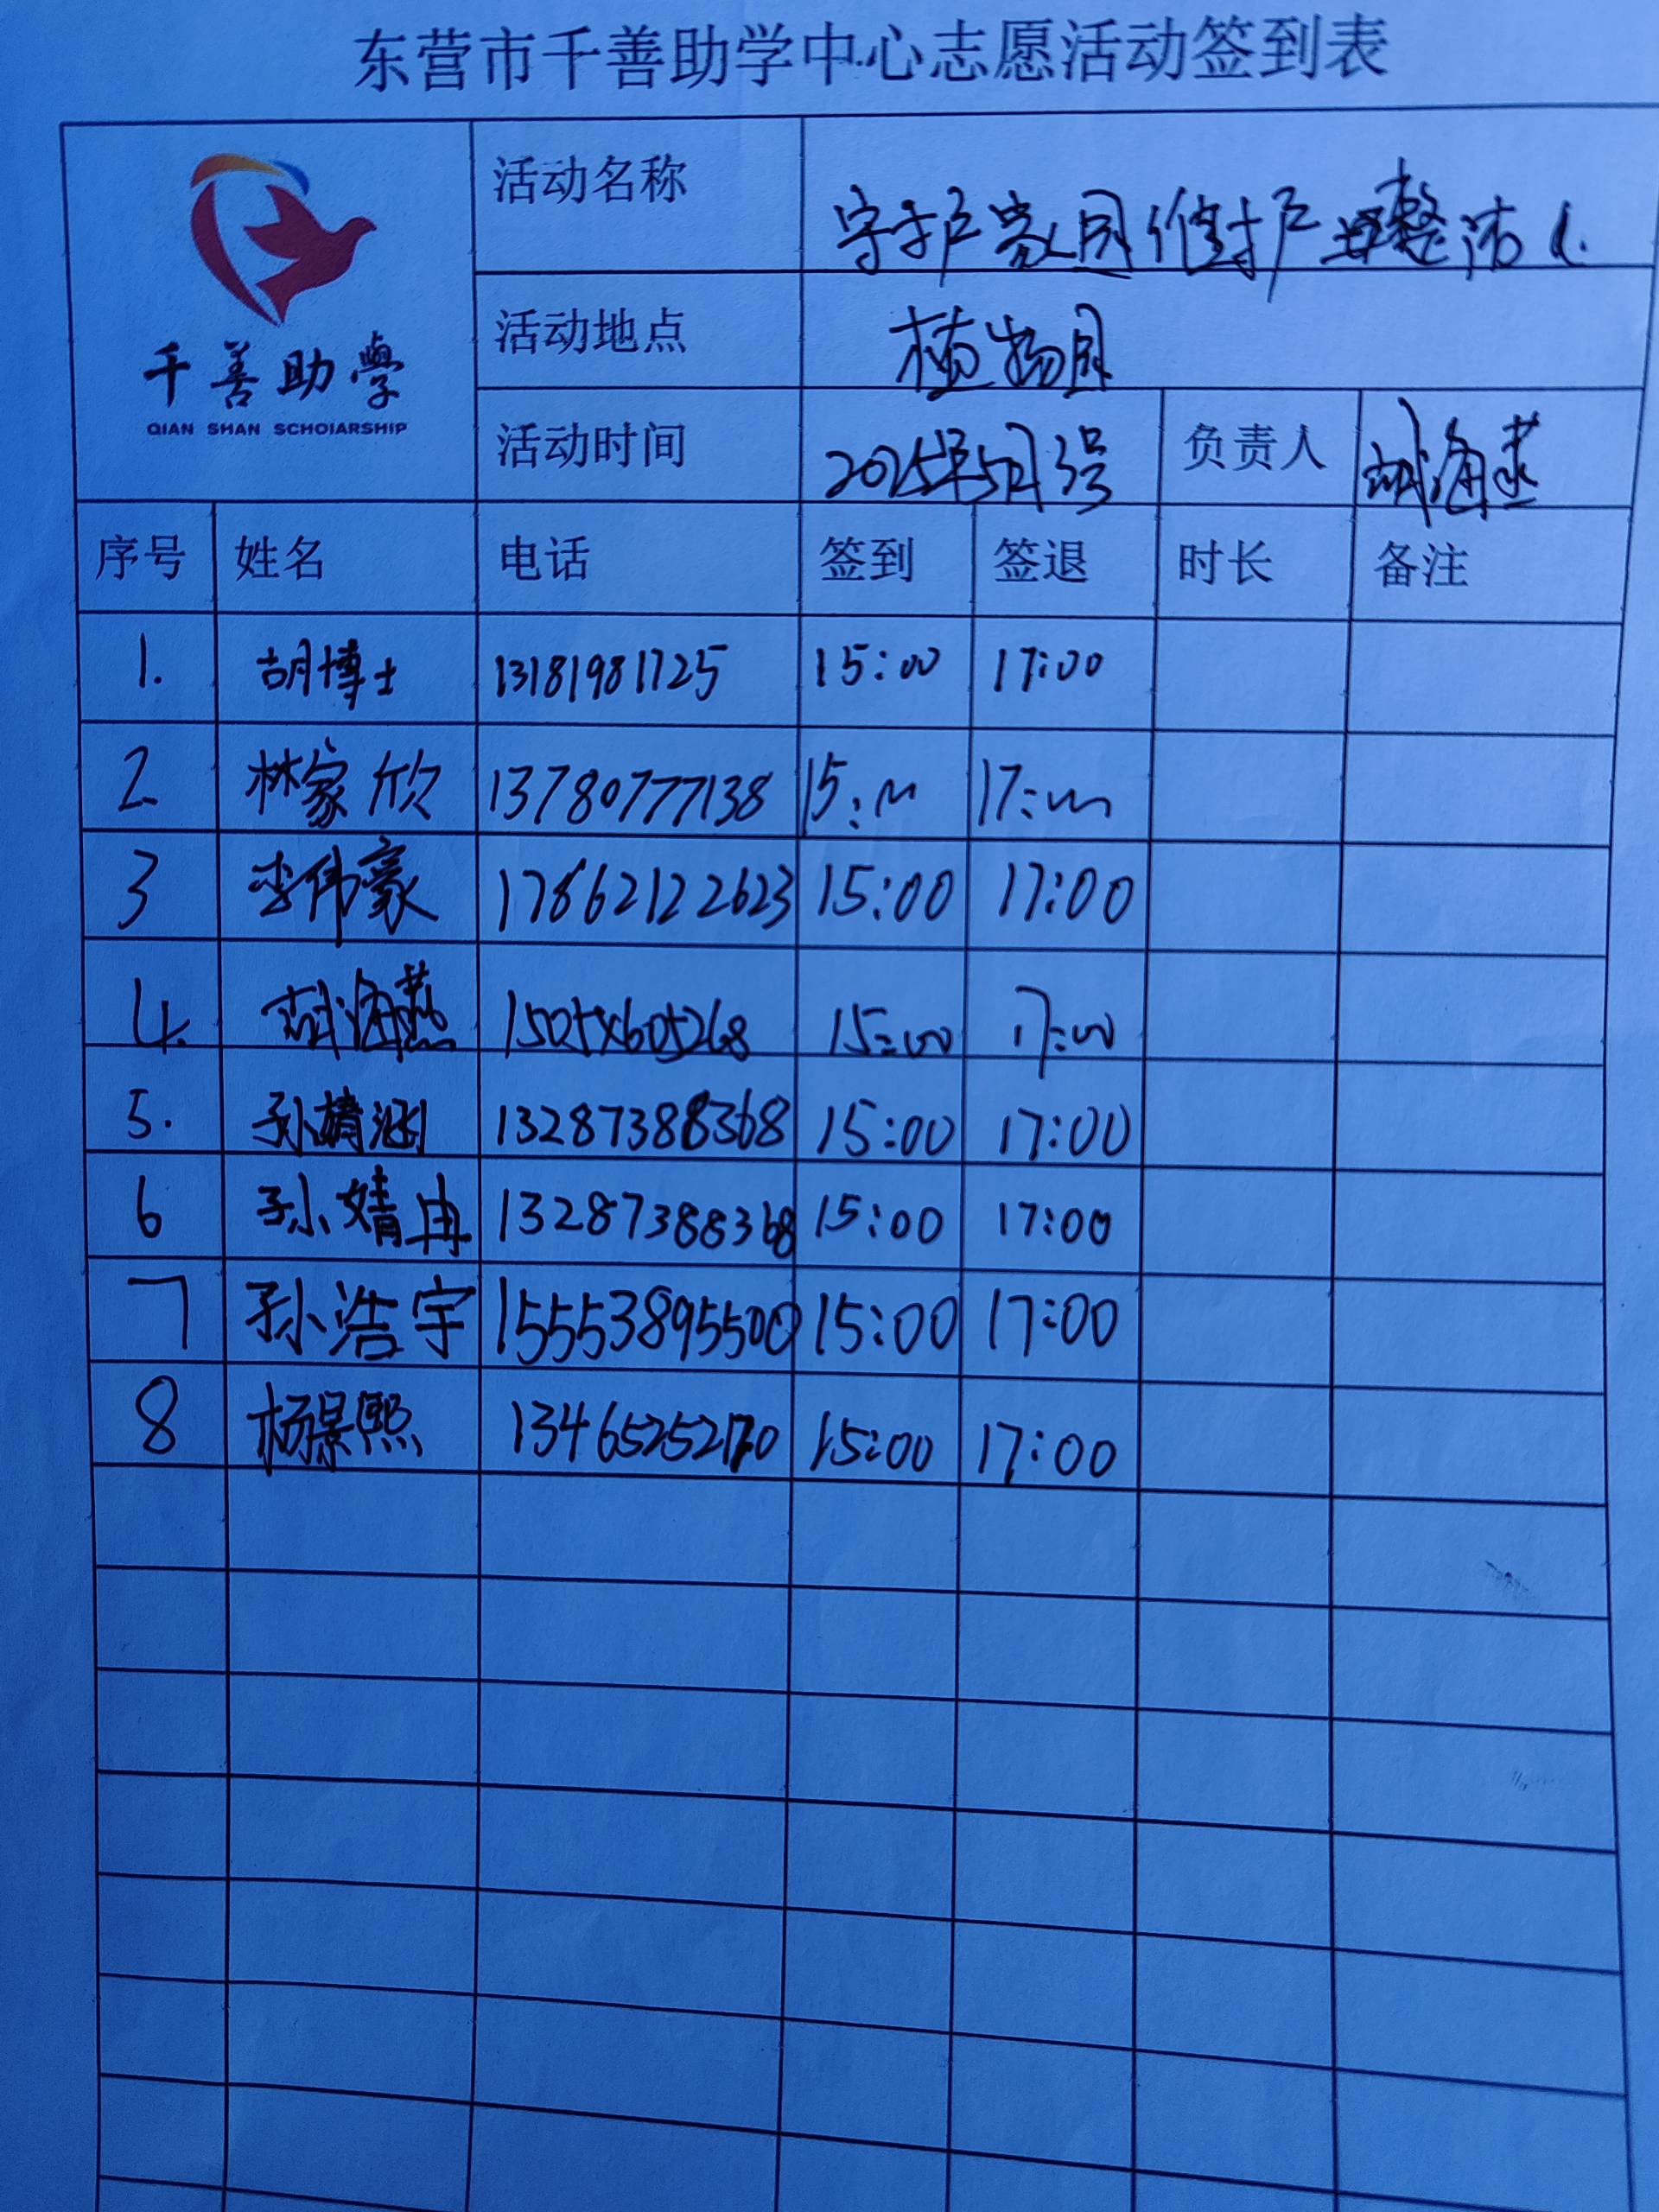 东营市千善助学中心志愿活动签到表
千善助學
QIAN SHAN SCHOIARSHIP
活动名称 守护家园维护整洁
活动地点 植物园
活动时间 2025年5月3号 负责人 海燕
序号 姓名 电话 签到 签退 时长 备注
1. 胡博士 13181981725 15:00 17:00
2. 林家欣 13780777138 15:00 17:00
3 李伟豪 17862122623 15:00 17:00
4. 海燕 15:00 17:00
5. 孙婧涵 13287388368 15:00 17:00
6 孙婧冉 13287388368 15:00 17:00
7 孙浩宇 15553895500 15:00 17:00
8 杨景熙 13465252170 15:00 17:00